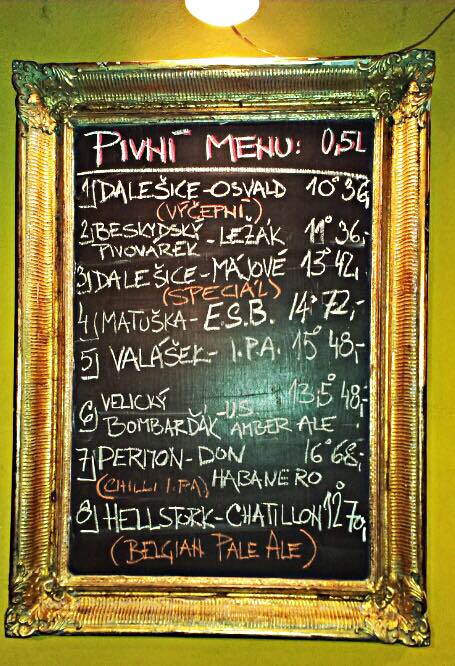 PIVNÍ MENU: 0,5L
1) DALEŠICE-OSVALD 10° 36,-
(VÝČEPNÍ)
2) BESKYDSKÝ PIVOVÁREK - LEŽÁK 11° 36,-
3) DALEŠICE-MÁJOVÉ 13° 42,-
(SPECIÁL)
4) MATUŠKA- E.S.B. 14° 72,-
5) VALÁŠEK- I.P.A. 15° 48,-
6) VELICKÝ 13,5° 48,-
BOMBARĎÁK -US AMBER ALE
7) PERMON-DON 16° 68,-
(CHILLI I.PA) HABANERO
8) HELLSTORK-CHATILLON 12° 70,-
(BELGIAN PALE ALE)